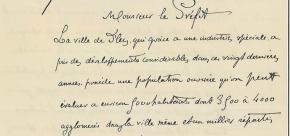 Monsieur le Préfet
La ville de Flers, qui grâce à une industrie spéciale a
pris des développements considérables, dans ces vingt dernières
années, possède une population ouvrière qu'on peut
évaluer à environ 5000 habitants dont 3500 à 4000
agglomérés dans la ville même et un millier répartis